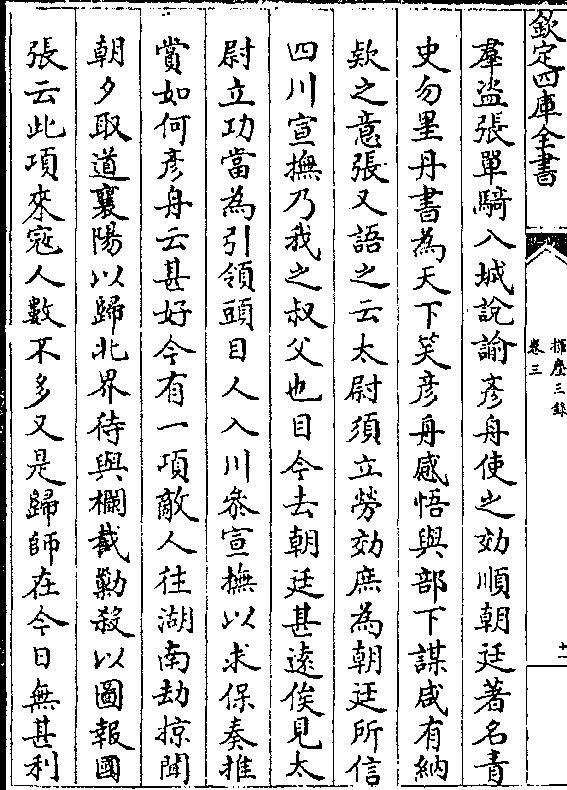 欽定四庫全書
揮麈三録
卷三
十一
羣盜張單騎入城説諭彥舟使之効順朝廷著名青
史勿墨丹書為天下笑彥舟感悟與部下謀咸有納
欵之意張又語之云太尉須立勞効庶為朝廷所信
四川宣撫乃我之叔父也目今去朝廷甚遠俟見太
尉立功當為引領頭目人入川參宣撫以求保奏推
賞如何彥舟云甚好今有一項敵人往湖南劫掠聞
朝夕取道襄陽以歸北界待與欄截勦殺以圖報國
張云此項來寇人數不多又是歸師在今日無甚利